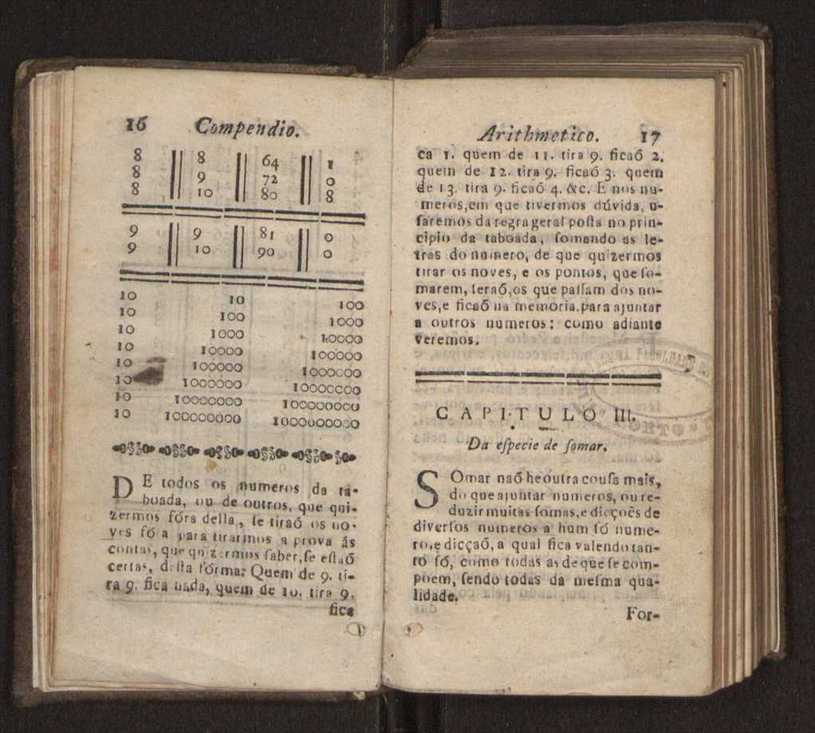 16 Compendio.
8 8 64 1
8 9 72 0
8 10 80 8
9 9 81 0
9 10 90 0
10 10 100
10 100 1000
10 1000 10000
10 10000 100000
10 100000 1000000
10 1000000 10000000
10 10000000 100000000
10 100000000 1000000000
DE todos os numeros da ta-
boada, ou de outros, que qui-
zermos fóra della, se tiraõ os no-
ves só a para tirarmos a prova ás
contas, que quizermos saber, se estaõ
certas, desta fórma: Quem de 9. ti-
ra 9. fica nada, quem de 10. tira 9.
fica
Arithmetico. 17
ca 1. quem de 11. tira 9. ficaõ 2.
quem de 12. tira 9. ficaõ 3. quem
de 13. tira 9. ficaõ 4. &c. E nos nu-
meros, em que tivermos dúvida, u-
saremos da regra geral posta no prin-
cipio da taboada, somando as le-
tras do numero, de que quizermos
tirar os noves, e os pontos, que so-
marem, seraõ, os que passam dos no-
ves, e ficaõ na memoria, para ajuntar
a outros numeros: como adiante
veremos.
CAPITULO III.
Da especie de somar.
SOmar naõ he outra cousa mais,
do que ajuntar numeros, ou re-
duzir muitas somas, e dicções de
diversos numeros a hum só nume-
ro, e dicçaõ, a qual fica valendo tan-
to só, como todas as de que se com-
poem, sendo todas da mesma qua-
lidade.
For-